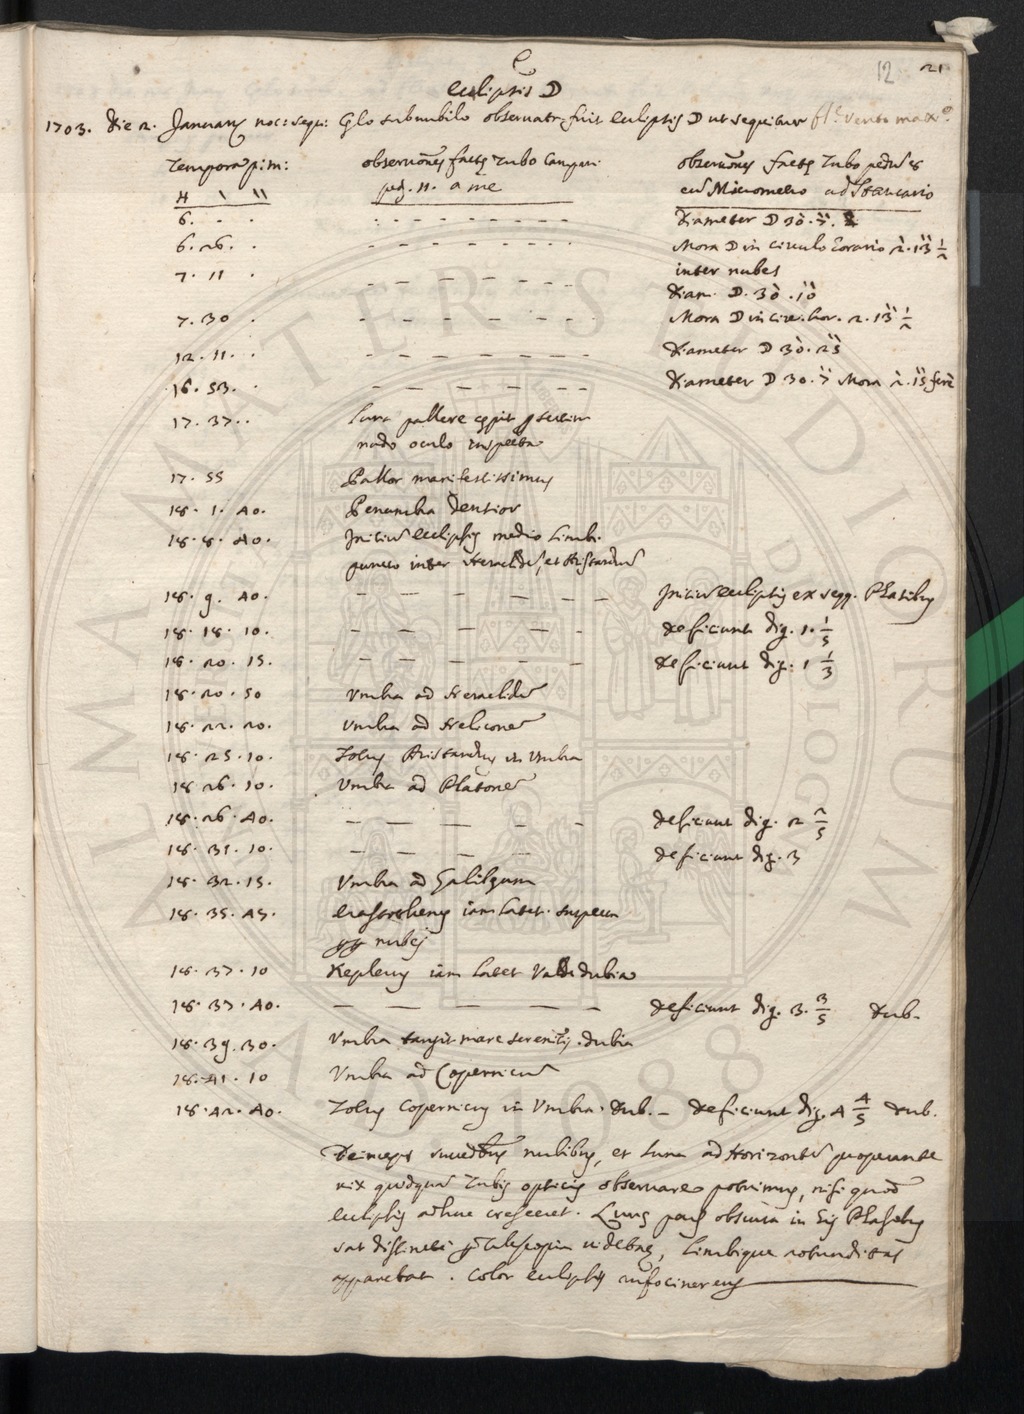 12 21
C
eclipsis D
1703. Die 2. Januarij noc: sequ: Cęlo subnubilo observata fuit eclipsis D ut sequitur fl.e Vento max.o
Tempora p.m: observãones factę Tubo Campani observãones factę Tubo pedũ 8
H ' '' ped. 11. a me cũ Micrometro ad Stancario
6. . . - - - - - - - Diameter D 30. 7.
6. 26. . - - - - - - - Mora D in circulo horario 2. 13 1/2
inter nubes
7. 11 . - - - - - - Diam. D. 30. 10
7. 30 . - - - - - - Mora D in circ. hor. 2. 13 1/2
12. 11. . - - - - - - - Diameter D 30. 25
16. 53. . - - - - - - - Diameter D 30. 7 Mora 2. 15 ferè
17. 37. . Luna pallere cępit
nudo oculo inspecta
17. 55 Pallor manifestissimus
18. 1. 40. Penumbra densior
18. 8. 40. Initiũ eclipsis medio Limbi
puncto inter Heraclidẽ, et Aristarchũ
18. 9. 40. - - - - - - Initiũ eclipsis ex seqq. Phasibus
18. 18. 10. - - - - - deficiunt dig. 1. 1/5
18. 20. 15. - - - - - deficiunt dig. 1 1/3
18. 20. 50 Vmbra ad Heraclidẽ
18. 22. 20. Vmbra ad Heliconẽ
18. 25. 10. Totus Aristarchus in Vmbra
18. 26. 10. Vmbra ad Platonẽ
18. 26. 40. - - - - - deficiunt dig. 2 2/5
18. 31. 10. - - - - deficiunt dig. 3
18. 32. 15. Vmbra ad Galilęum
18. 35. 45. Erastothenes iam latet. inspect.
nubes
18. 37. 10 Keplerus iam latet Valde dubia
18. 37. 40. - - - - - deficiunt dig. 3. 3/5 dub.
18. 39. 30. Vmbra tangit mare serenitatis. dubia
18. 41. 10 Vmbra ad Copernicũ
18. 42. 40. Totus Copernicus in Vmbra. dub. - deficiunt dig. 4 4/5 dub.
Deinceps nubibus, et Luna ad Horizontẽ properante
vix quidquã Tubis opticis observare potuimus, nisi quod
eclipsis adhuc cresceret. Lunę pars obscura in his Phasibus
sat distincte p Telescopiũ videbat, Limbique rotunditas
apparebat. Color eclipsis rufocinereus
ALMA MATER STUDIORUM
A.D. 1088